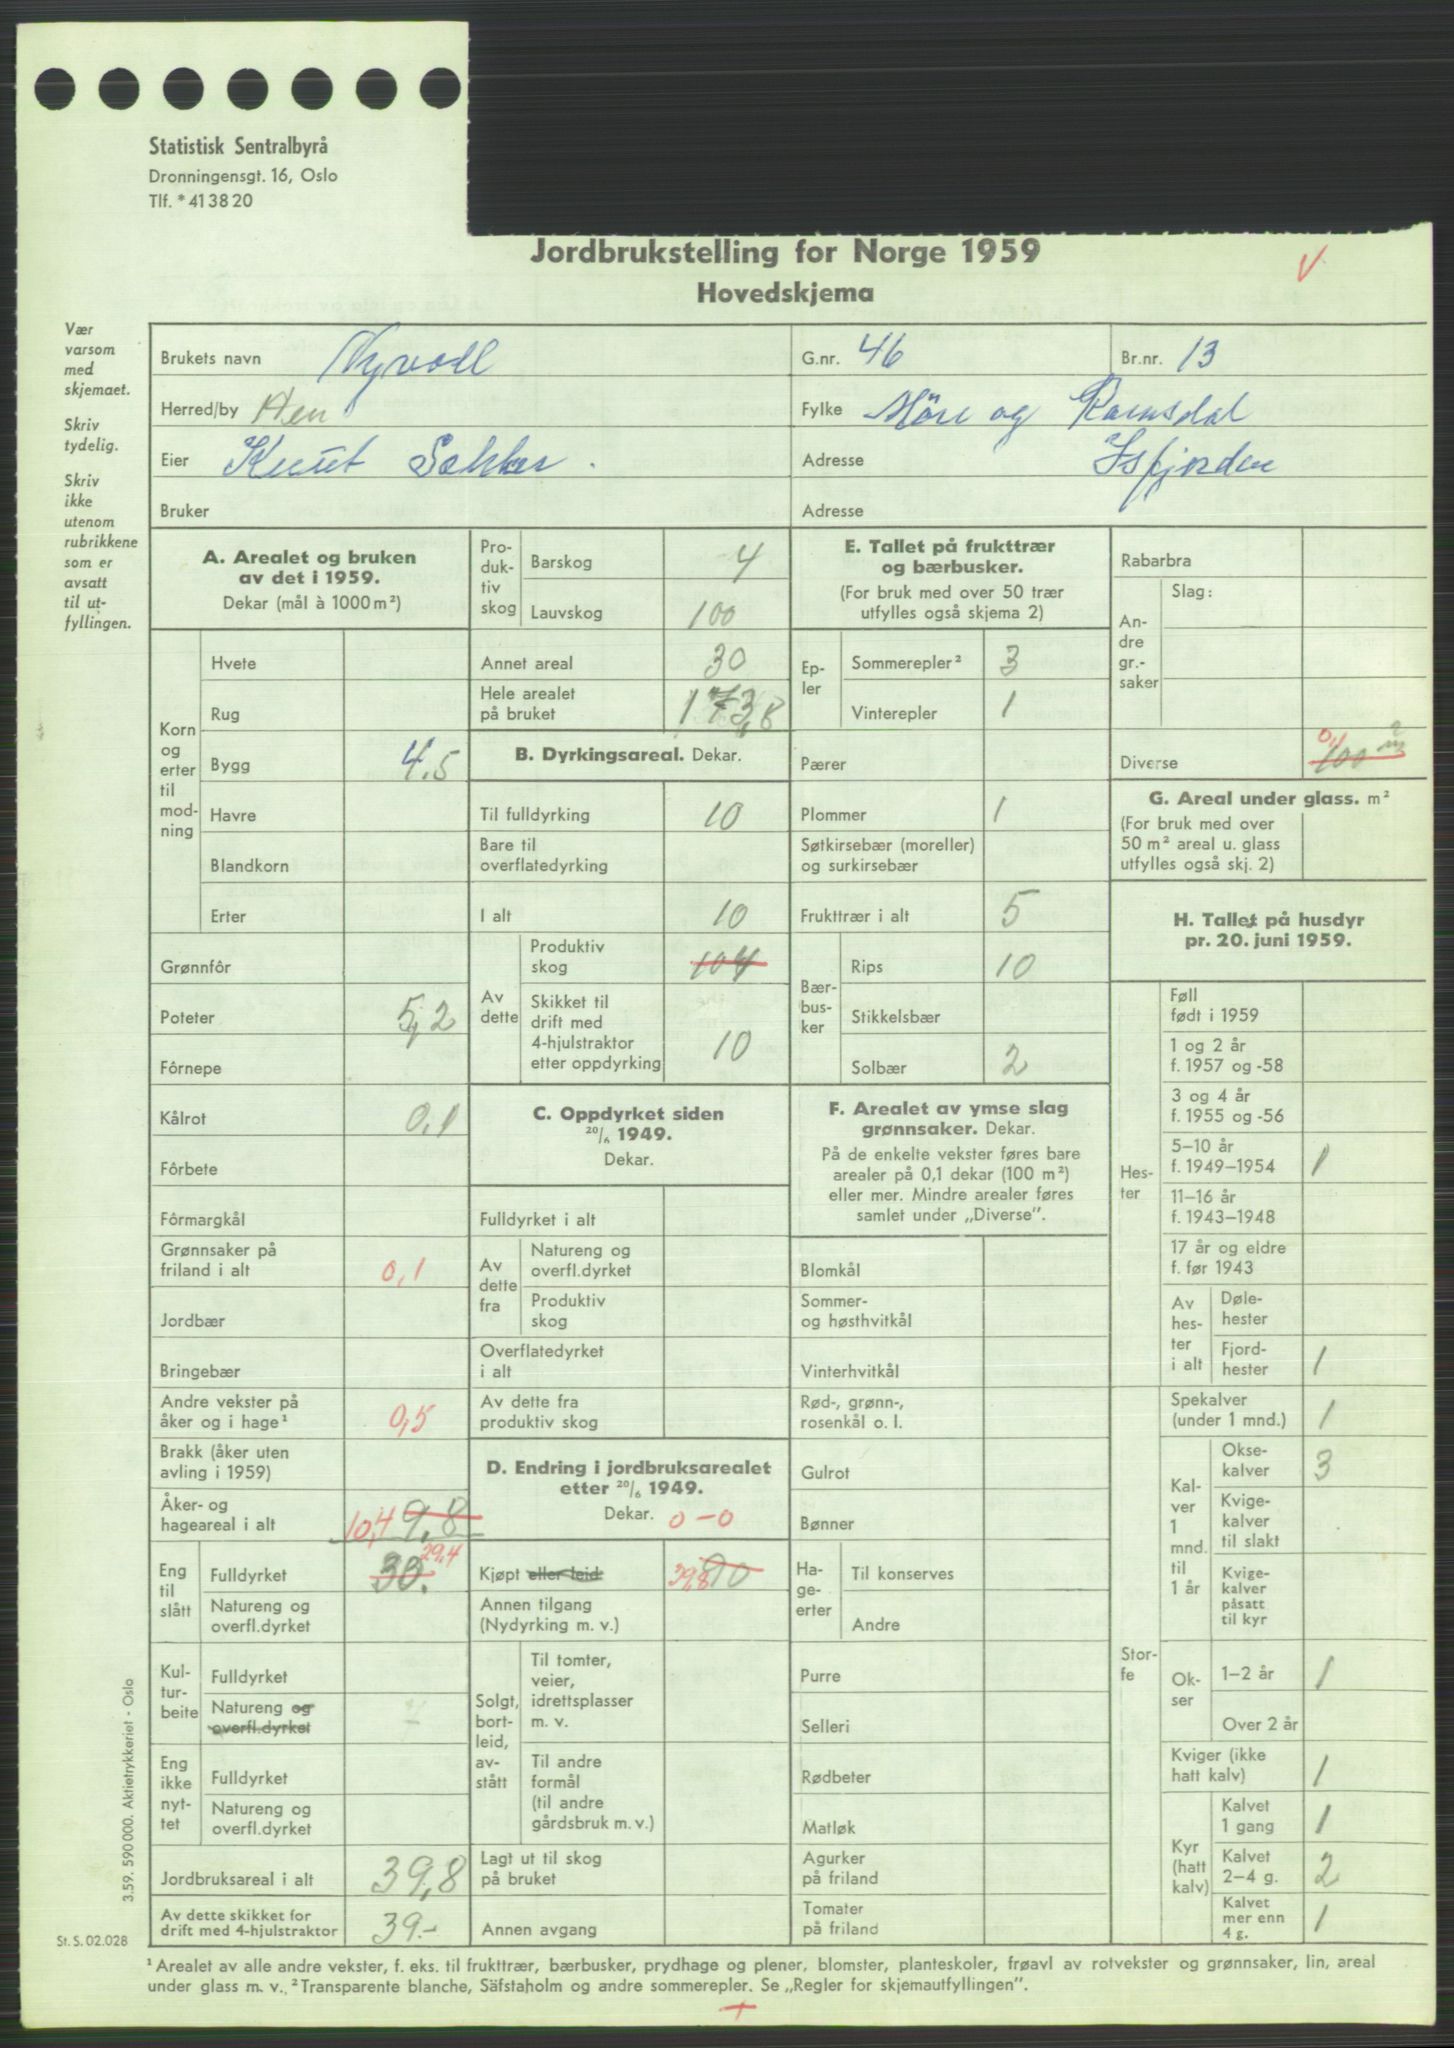 Statistisk Sentralbyrå
Dronningensgt. 16, Oslo
Tlf. * 41 38 20
Jordbrukstelling for Norge 1959
Hovedskjema
Vær
varsom
med
skjemaet.
Skriv
tydelig.
Skriv
ikke
utenom
rubrikkene
som er
avsatt
til ut-
fyllingen.
Brukets navn Nyvoll G.nr. 46 Br.nr. 13
Herred/by Hen Fylke Möre og Romsdal
Eier Knut Sekker . Adresse Isfjorden
Bruker Adresse
A. Arealet og bruken
av det i 1959.
Dekar (mål à 1000 m²)
Korn
og
erter
til
mod-
ning
Hvete
Rug
Bygg 4,5
Havre
Blandkorn
Erter
Grønnfôr
Poteter 5,2
Fôrnepe
Kålrot 0,1
Fôrbete
Fôrmargkål
Grønnsaker på
friland i alt 0,1
Jordbær
Bringebær
Andre vekster på
åker og i hage¹ 0,5
Brakk (åker uten
avling i 1959)
Åker- og
hageareal i alt 10,4 9,8
Eng
til
slått
Fulldyrket 30. 29,4
Natureng og
overfl.dyrket
Kul-
tur-
beite
Fulldyrket
Natureng og
overfl.dyrket
Eng
ikke
nyt-
tet
Fulldyrket
Natureng og
overfl.dyrket
Jordbruksareal i alt 39,8
Av dette skikket for
drift med 4-hjulstraktor 39.-
Pro-
duk-
tiv
skog
Barskog 4
Lauvskog 100
Annet areal 30
Hele arealet
på bruket 173,8
B. Dyrkingsareal. Dekar.
Til fulldyrking 10
Bare til
overflatedyrking
I alt 10
Av
dette
Produktiv
skog 104
Skikket til
drift med
4-hjulstraktor
etter oppdyrking 10
C. Oppdyrket siden
20/6 1949.
Dekar.
Fulldyrket i alt
Av
dette
fra
Natureng og
overfl.dyrket
Produktiv
skog
Overflatedyrket
i alt
Av dette fra
produktiv skog
D. Endring i jordbruksarealet
etter 20/6 1949.
Dekar. 0-0
Kjøpt eller leid 39,8
Annen tilgang
(Nydyrking m. v.)
Solgt,
bort-
leid,
av-
stått
Til tomter,
veier,
idrettsplasser
m. v.
Til andre
formål
(til andre
gårdsbruk m. v.)
Lagt ut til skog
på bruket
Annen avgang
E. Tallet på frukttrær
og bærbusker.
(For bruk med over 50 trær
utfylles også skjema 2)
Ep-
ler
Sommerepler² 3
Vinterepler 1
Pærer
Plommer 1
Søtkirsebær (moreller)
og surkirsebær
Frukttrær i alt 5
Bær-
bus-
ker
Rips 10
Stikkelsbær
Solbær 2
F. Arealet av ymse slag
grønnsaker. Dekar.
På de enkelte vekster føres bare
arealer på 0,1 dekar (100 m²)
eller mer. Mindre arealer føres
samlet under „Diverse”.
Blomkål
Sommer-
og høsthvitkål
Vinterhvitkål
Rød-, grønn-,
rosenkål o. l.
Gulrot
Bønner
Ha-
ge-
erter
Til konserves
Andre
Purre
Selleri
Rødbeter
Matløk
Agurker
på friland
Tomater
på friland
Rabarbra
An-
dre
gr.-
saker
Slag:
Diverse 0,1 100 m²
G. Areal under glass. m²
(For bruk med over
50 m² areal u. glass
utfylles også skj. 2)
H. Tallet på husdyr
pr. 20. juni 1959.
Hes-
ter
Føll
født i 1959
1 og 2 år
f. 1957 og -58
3 og 4 år
f. 1955 og -56
5–10 år
f. 1949–1954 1
11–16 år
f. 1943–1948
17 år og eldre
f. før 1943
Av
hes-
ter
i alt
Døle-
hester
Fjord-
hester 1
Stor-
fe
Spekalver
(under 1 mnd.) 1
Kal-
ver
1
mnd.
til
1 år
Okse-
kalver 3
Kvige-
kalver
til slakt
Kvige-
kalver
påsatt
til kyr
Ok-
ser
1–2 år 1
Over 2 år
Kviger (ikke
hatt kalv) 1
Kyr
(hatt
kalv)
Kalvet
1 gang 1
Kalvet
2–4 g. 2
Kalvet
mer enn
4 g. 1
3.59. 590 000. Aktietrykkeriet - Oslo
St. S. 02.028
¹ Arealet av alle andre vekster, f. eks. til frukttrær, bærbusker, prydhage og plener, blomster, planteskoler, frøavl av rotvekster og grønnsaker, lin, areal
under glass m. v. ² Transparente blanche, Säfstaholm og andre sommerepler. Se „Regler for skjemautfyllingen”.